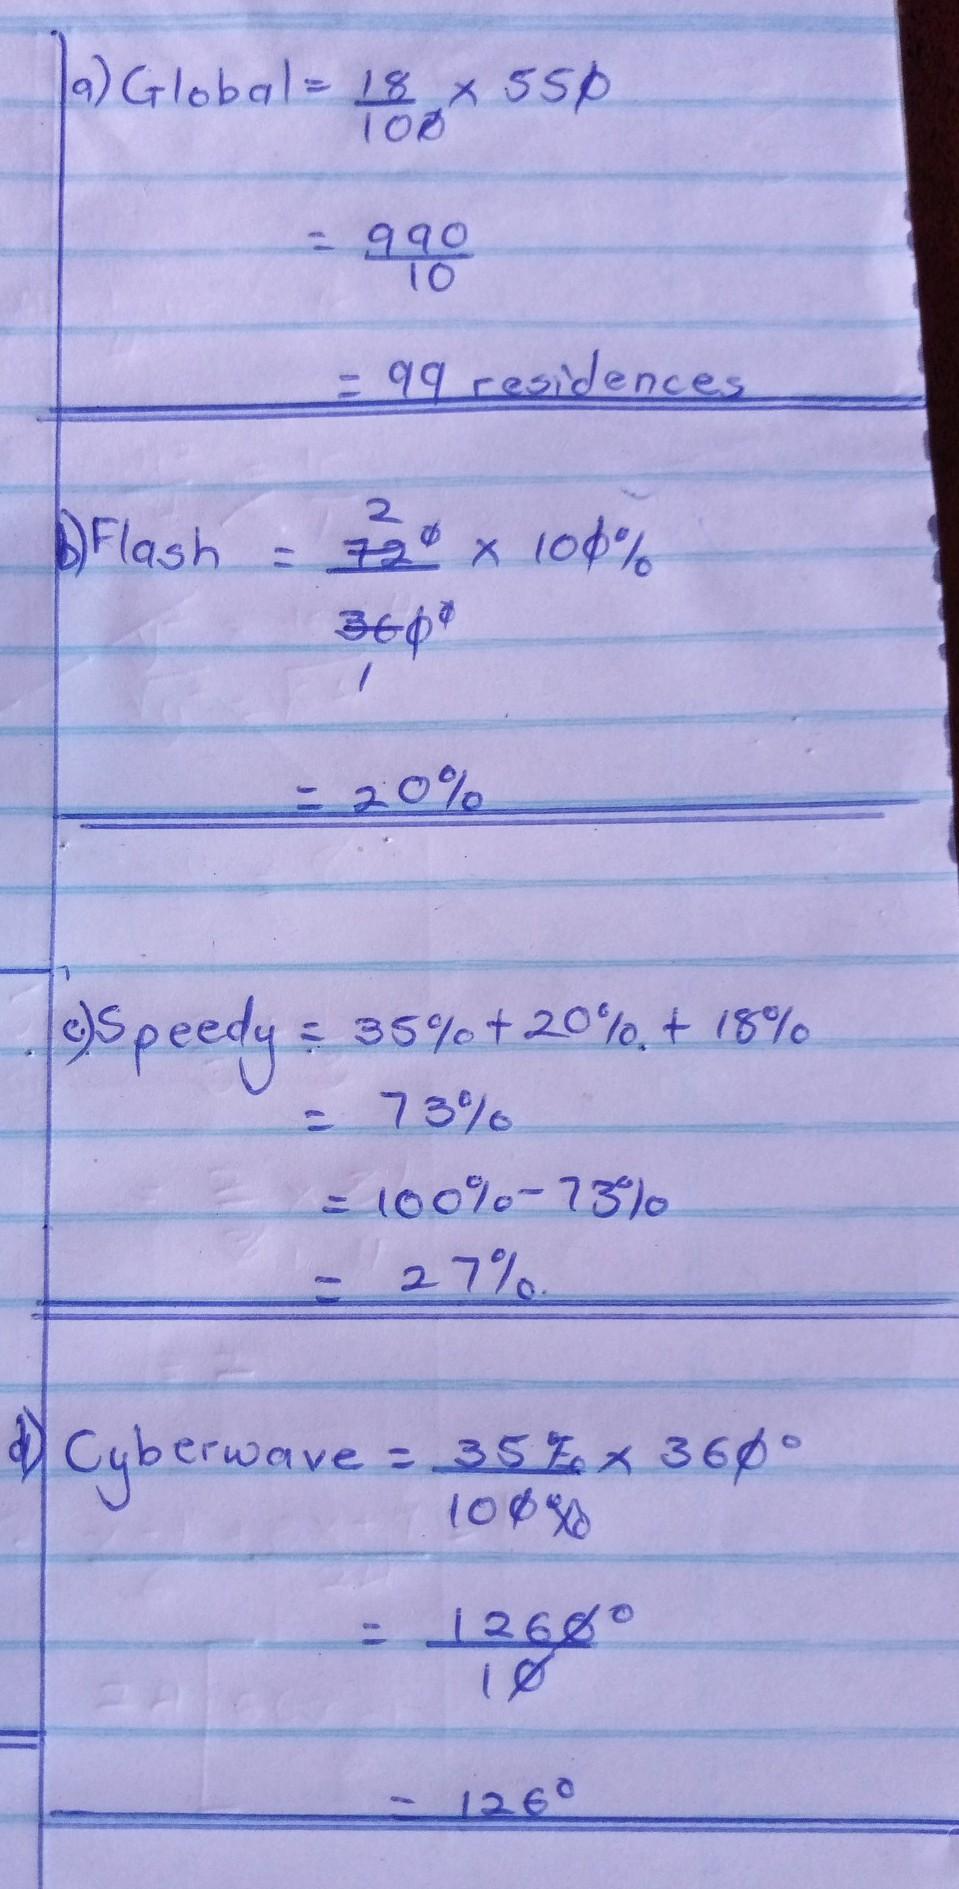 a) Global = 18/100 x 550
= 990/10
= 99 residences
b) Flash = 72°/360° x 100%
2
1
= 20%
c) Speedy = 35% + 20% + 18%
= 73%
= 100% - 73%
= 27%.
d) Cyberwave = 35%/100% x 360°
= 1260°/10
= 126°